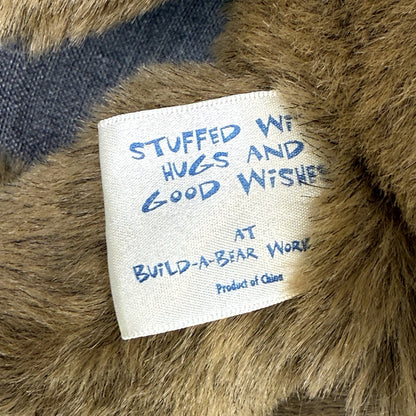 STUFFED WI
HUGS AND
GOOD WISHE
AT
BUILD-A-BEAR WORK
Product of China